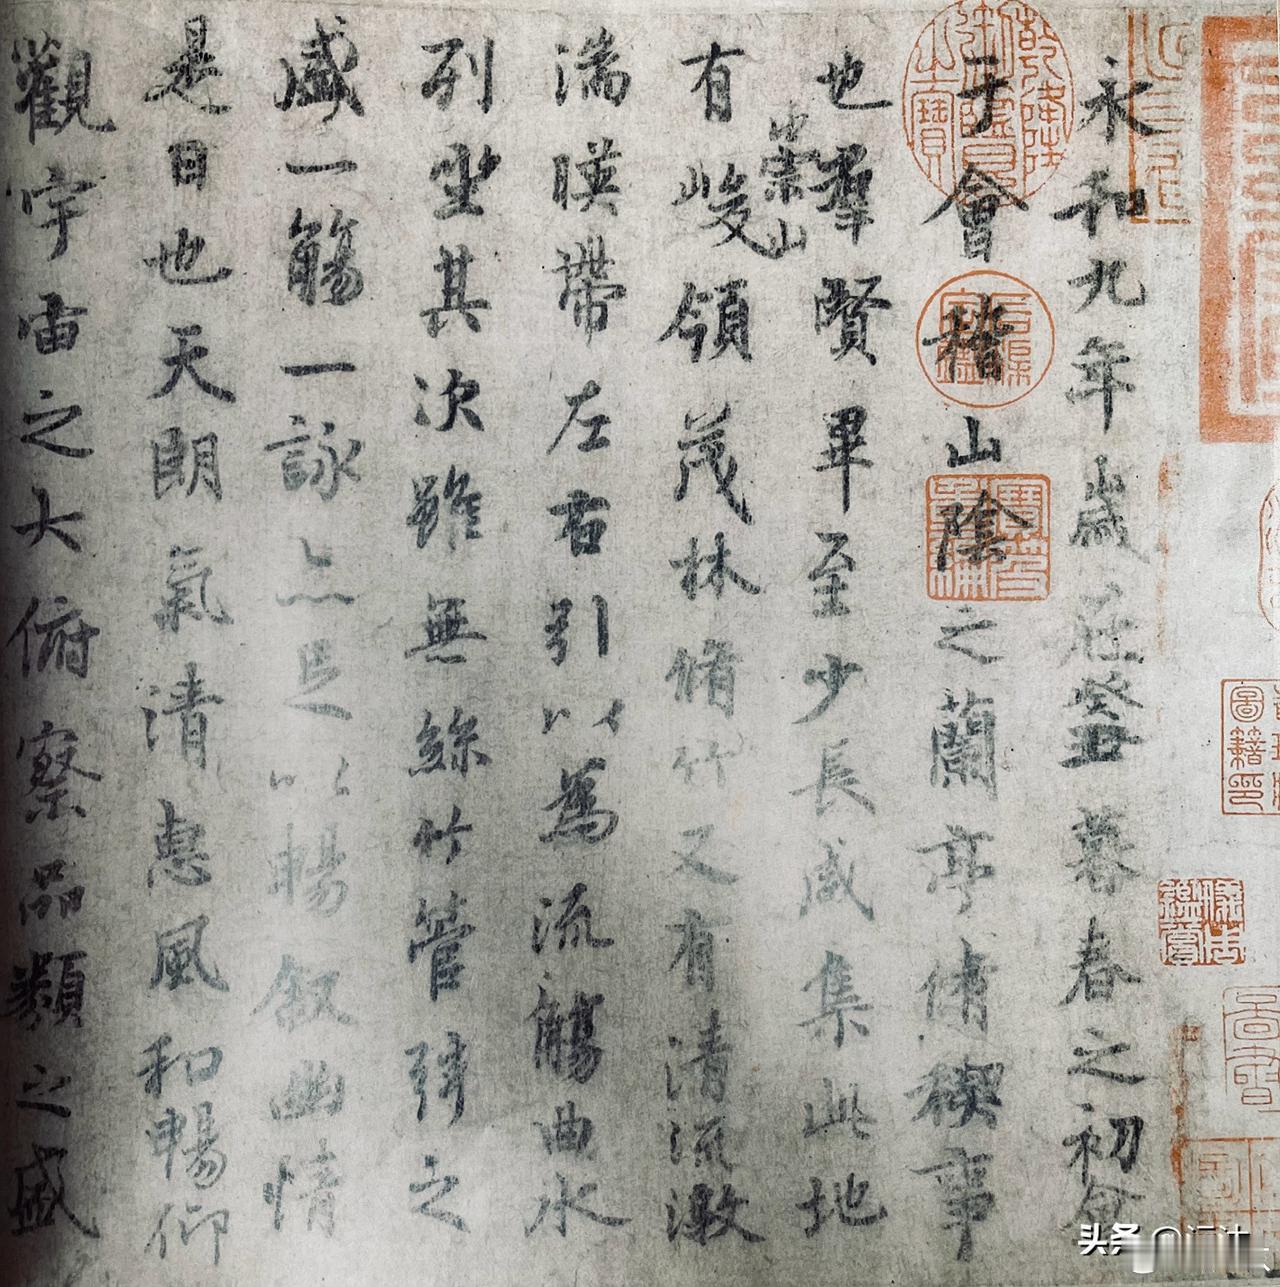 永和九年歲在癸丑暮春之初會
于會稽山陰之蘭亭脩稧事
也羣賢畢至少長咸集此地
有崇山峻領茂林脩竹又有清流激
湍暎帶左右引以為流觴曲水
列坐其次雖無絲竹管弦之
盛一觴一詠亦足以暢敘幽情
是日也天朗氣清惠風和暢仰
觀宇宙之大俯察品類之盛
圖籍印
頭条